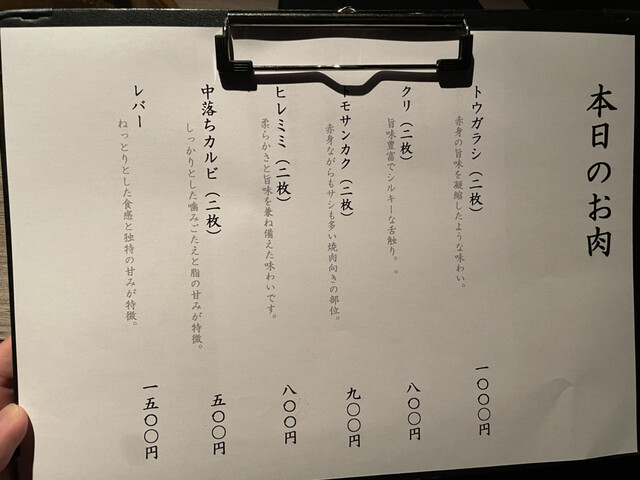 本日のお肉
トウガラシ（二枚）
赤身の旨味を凝縮したような味わい。
一〇〇〇円
クリ（二枚）
旨味豊富でシルキーな舌触り。。
八〇〇円
トモサンカク（二枚）
赤身ながらもサシも多い焼肉向きの部位。
九〇〇円
ヒレミミ（二枚）
柔らかさと旨味を兼ね備えた味わいです。
八〇〇円
中落ちカルビ（二枚）
しっかりとした噛みごたえと脂の甘みが特徴。
五〇〇円
レバー
ねっとりとした食感と独特の甘みが特徴。
一五〇〇円